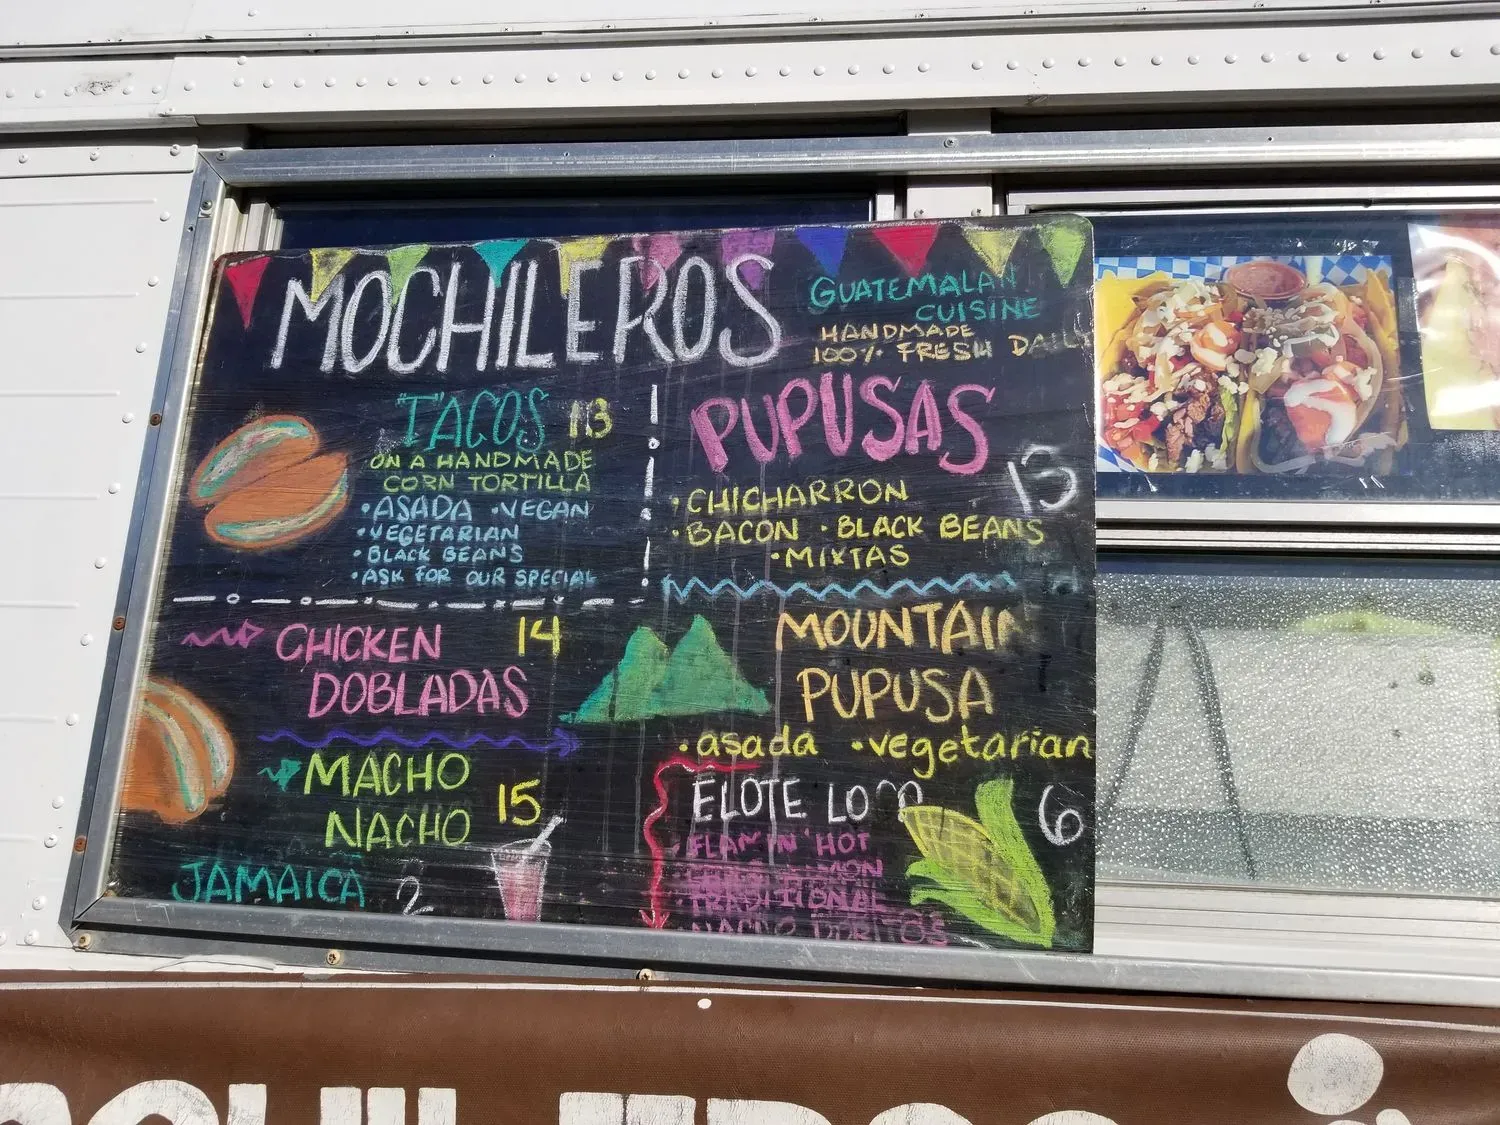 MOCHILEROS
GUATEMALAN
CUISINE
HANDMADE
100% FRESH DAILY
"T"ACOS 13
ON A HANDMADE
CORN TORTILLA
• ASADA • VEGAN
• VEGETARIAN
• BLACK BEANS
• ASK FOR OUR SPECIAL
CHICKEN 14
DOBLADAS
MACHO
NACHO 15
JAMAICA 2
PUPUSAS
13
• CHICHARRON
• BACON • BLACK BEANS
• MIXTAS
MOUNTAIN
PUPUSA
• asada • vegetarian
ELOTE LOCO 6
FLAMIN' HOT
• TRADITIONAL
NACHO DORITOS